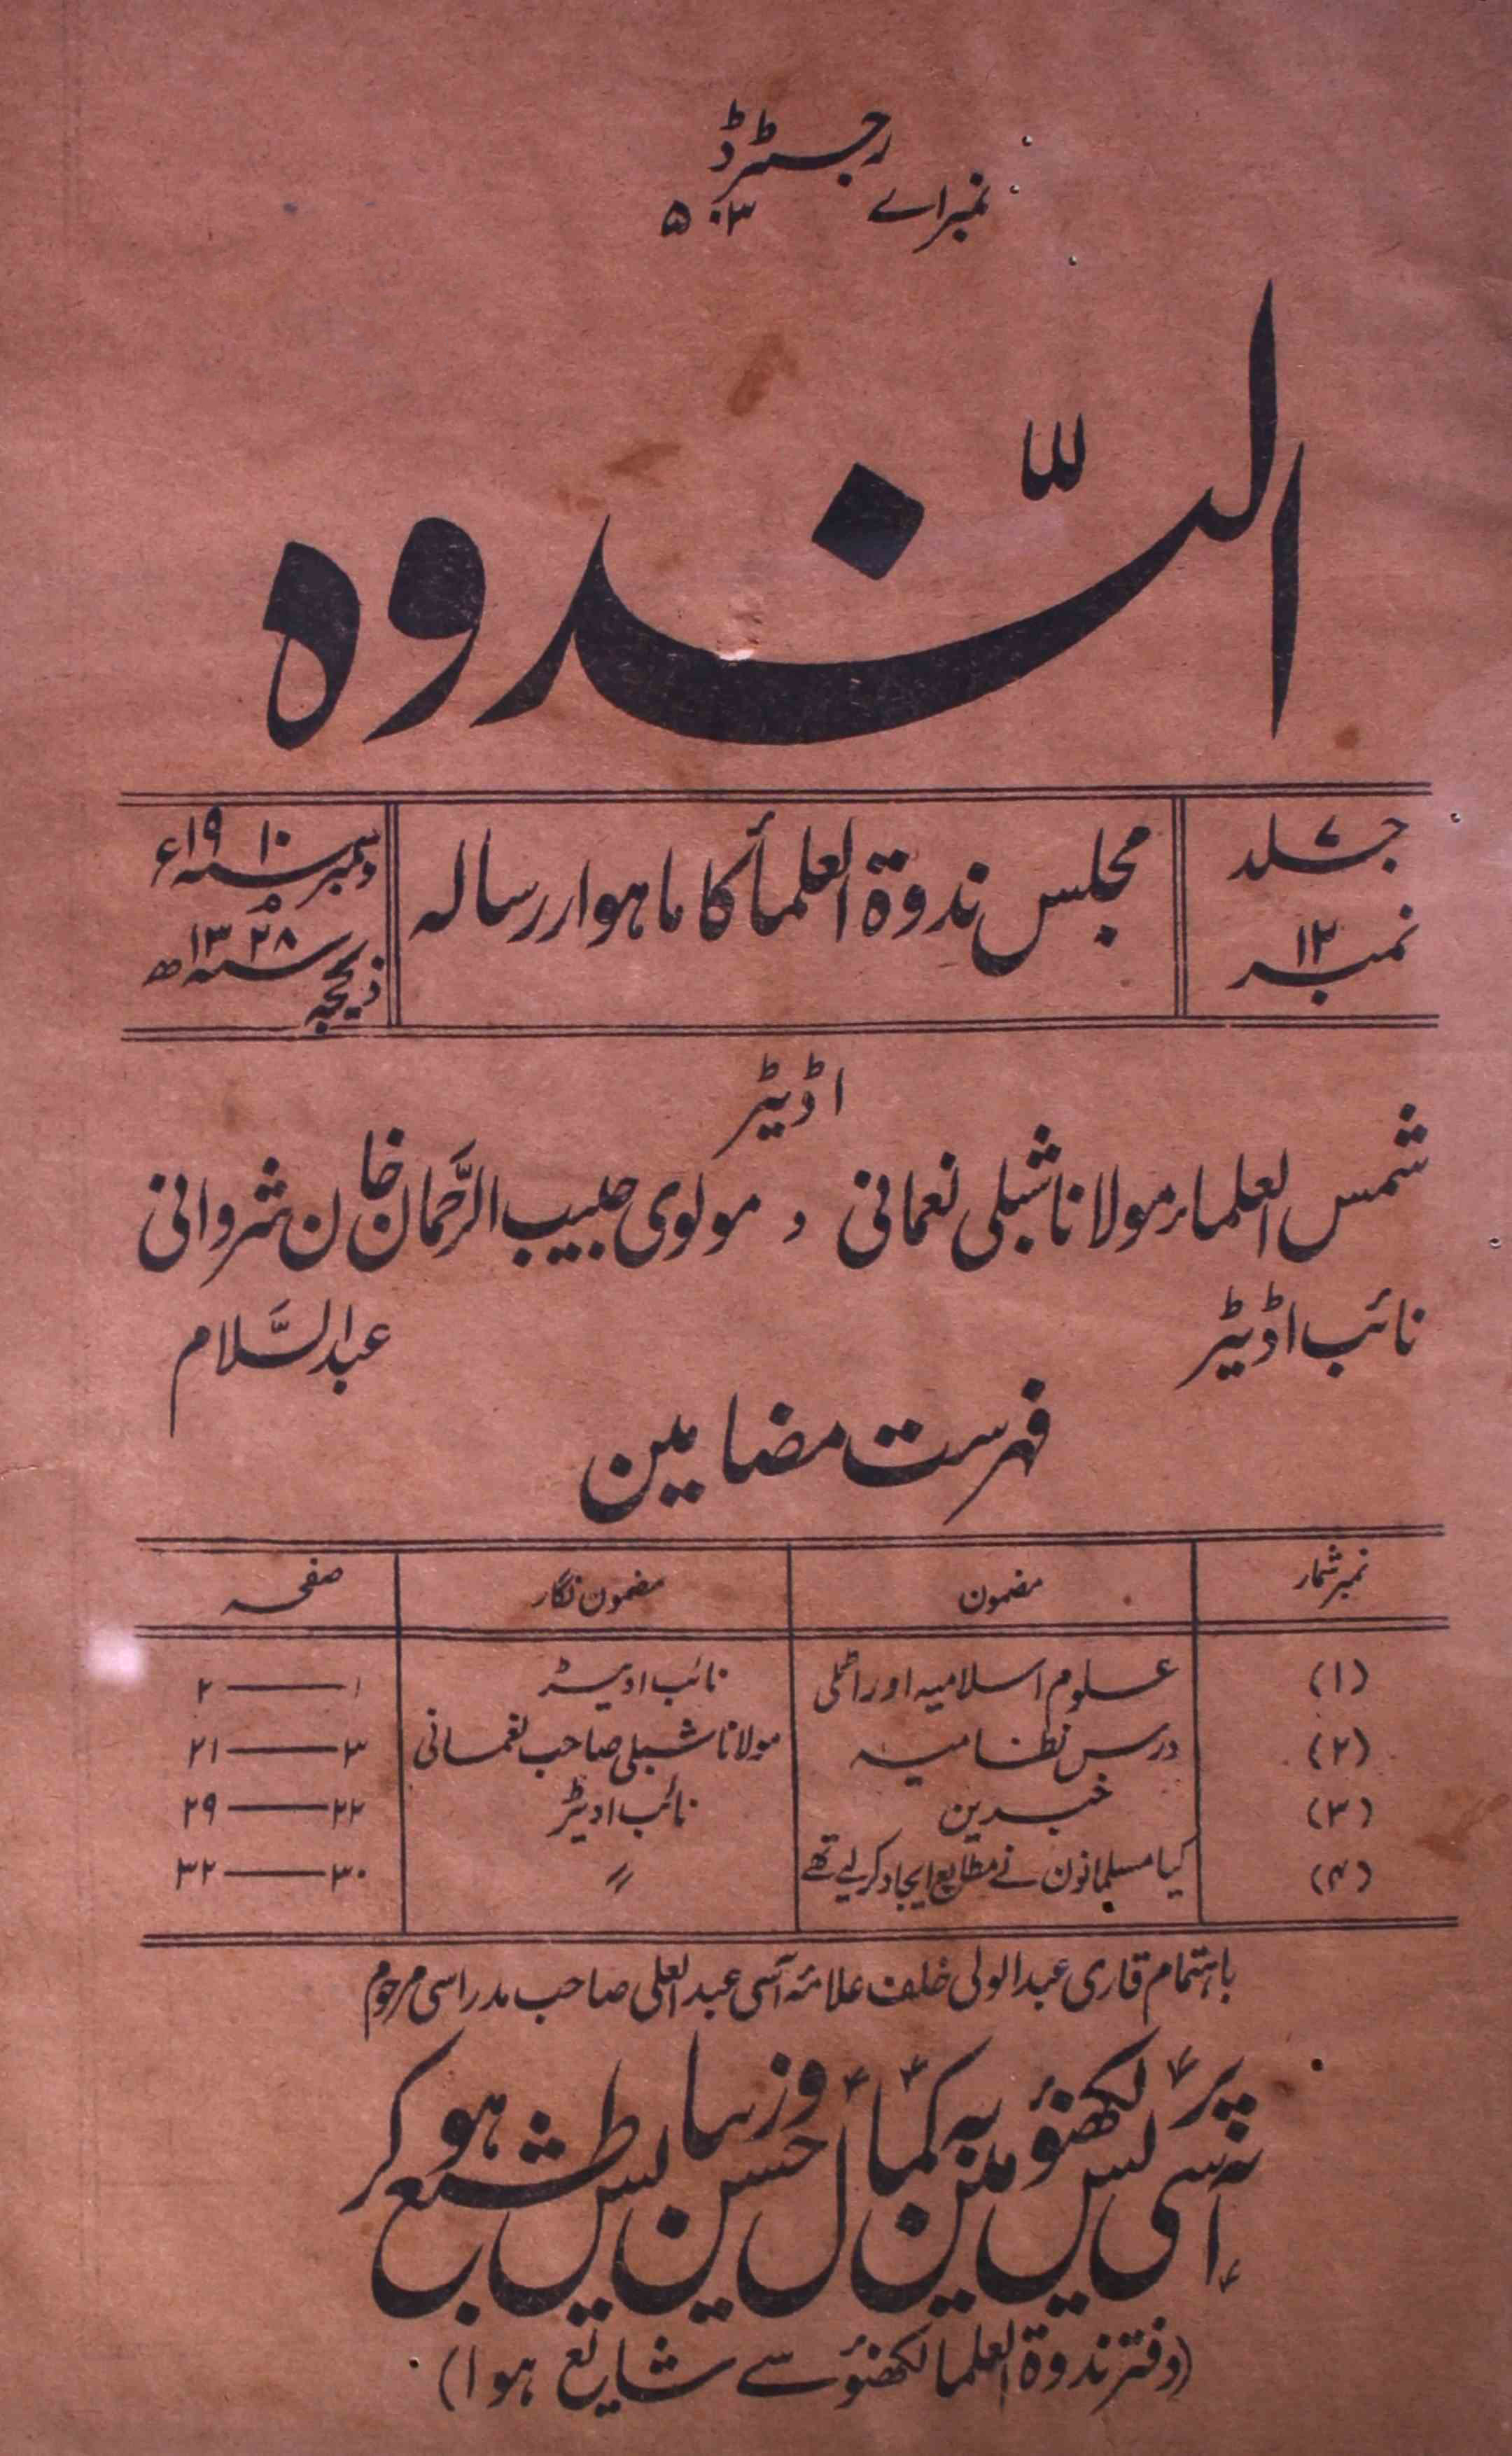 رجسٹرڈ
نمبر اے ۵۰۳
النّدوہ
جلد ۷
نمبر ۱۲
مجلس ندوۃ العلمأ کا ماہوار رسالہ
دسمبر سنہ ۱۹۱۰ء
ذیحجہ سنہ ۱۳۲۸ھ
اڈیٹر
شمس العلماء مولانا شبلی نعمانی و مولوی حبیب الرَّحمان خان شروانی
نائب اڈیٹر عبدالسَّلام
فہرست مضامین
نمبر شمار مضمون مضمون نگار صفحہ
(۱) علوم اسلامیہ اور اٹلی نائب اڈیٹر ۱ — ۲
(۲) درس نظامیہ مولانا شبلی صاحب نعمانی ۳ — ۲۱
(۳) خبرین نائب اڈیٹر ۲۲ — ۲۹
(۴) کیا مسلمانون نے مطابع ایجاد کر لیے تھے 〃 ۳۰ — ۳۲
باہتمام قاری عبدالولی خلف علامۂ آسی عبدالعلی صاحب مدراسی مرحوم
آسی پریس لکھنؤ مین بہ کمال حسن و زیبایش طبع ہو کر
(دفتر ندوۃ العلما لکھنؤ سے شایع ہوا)